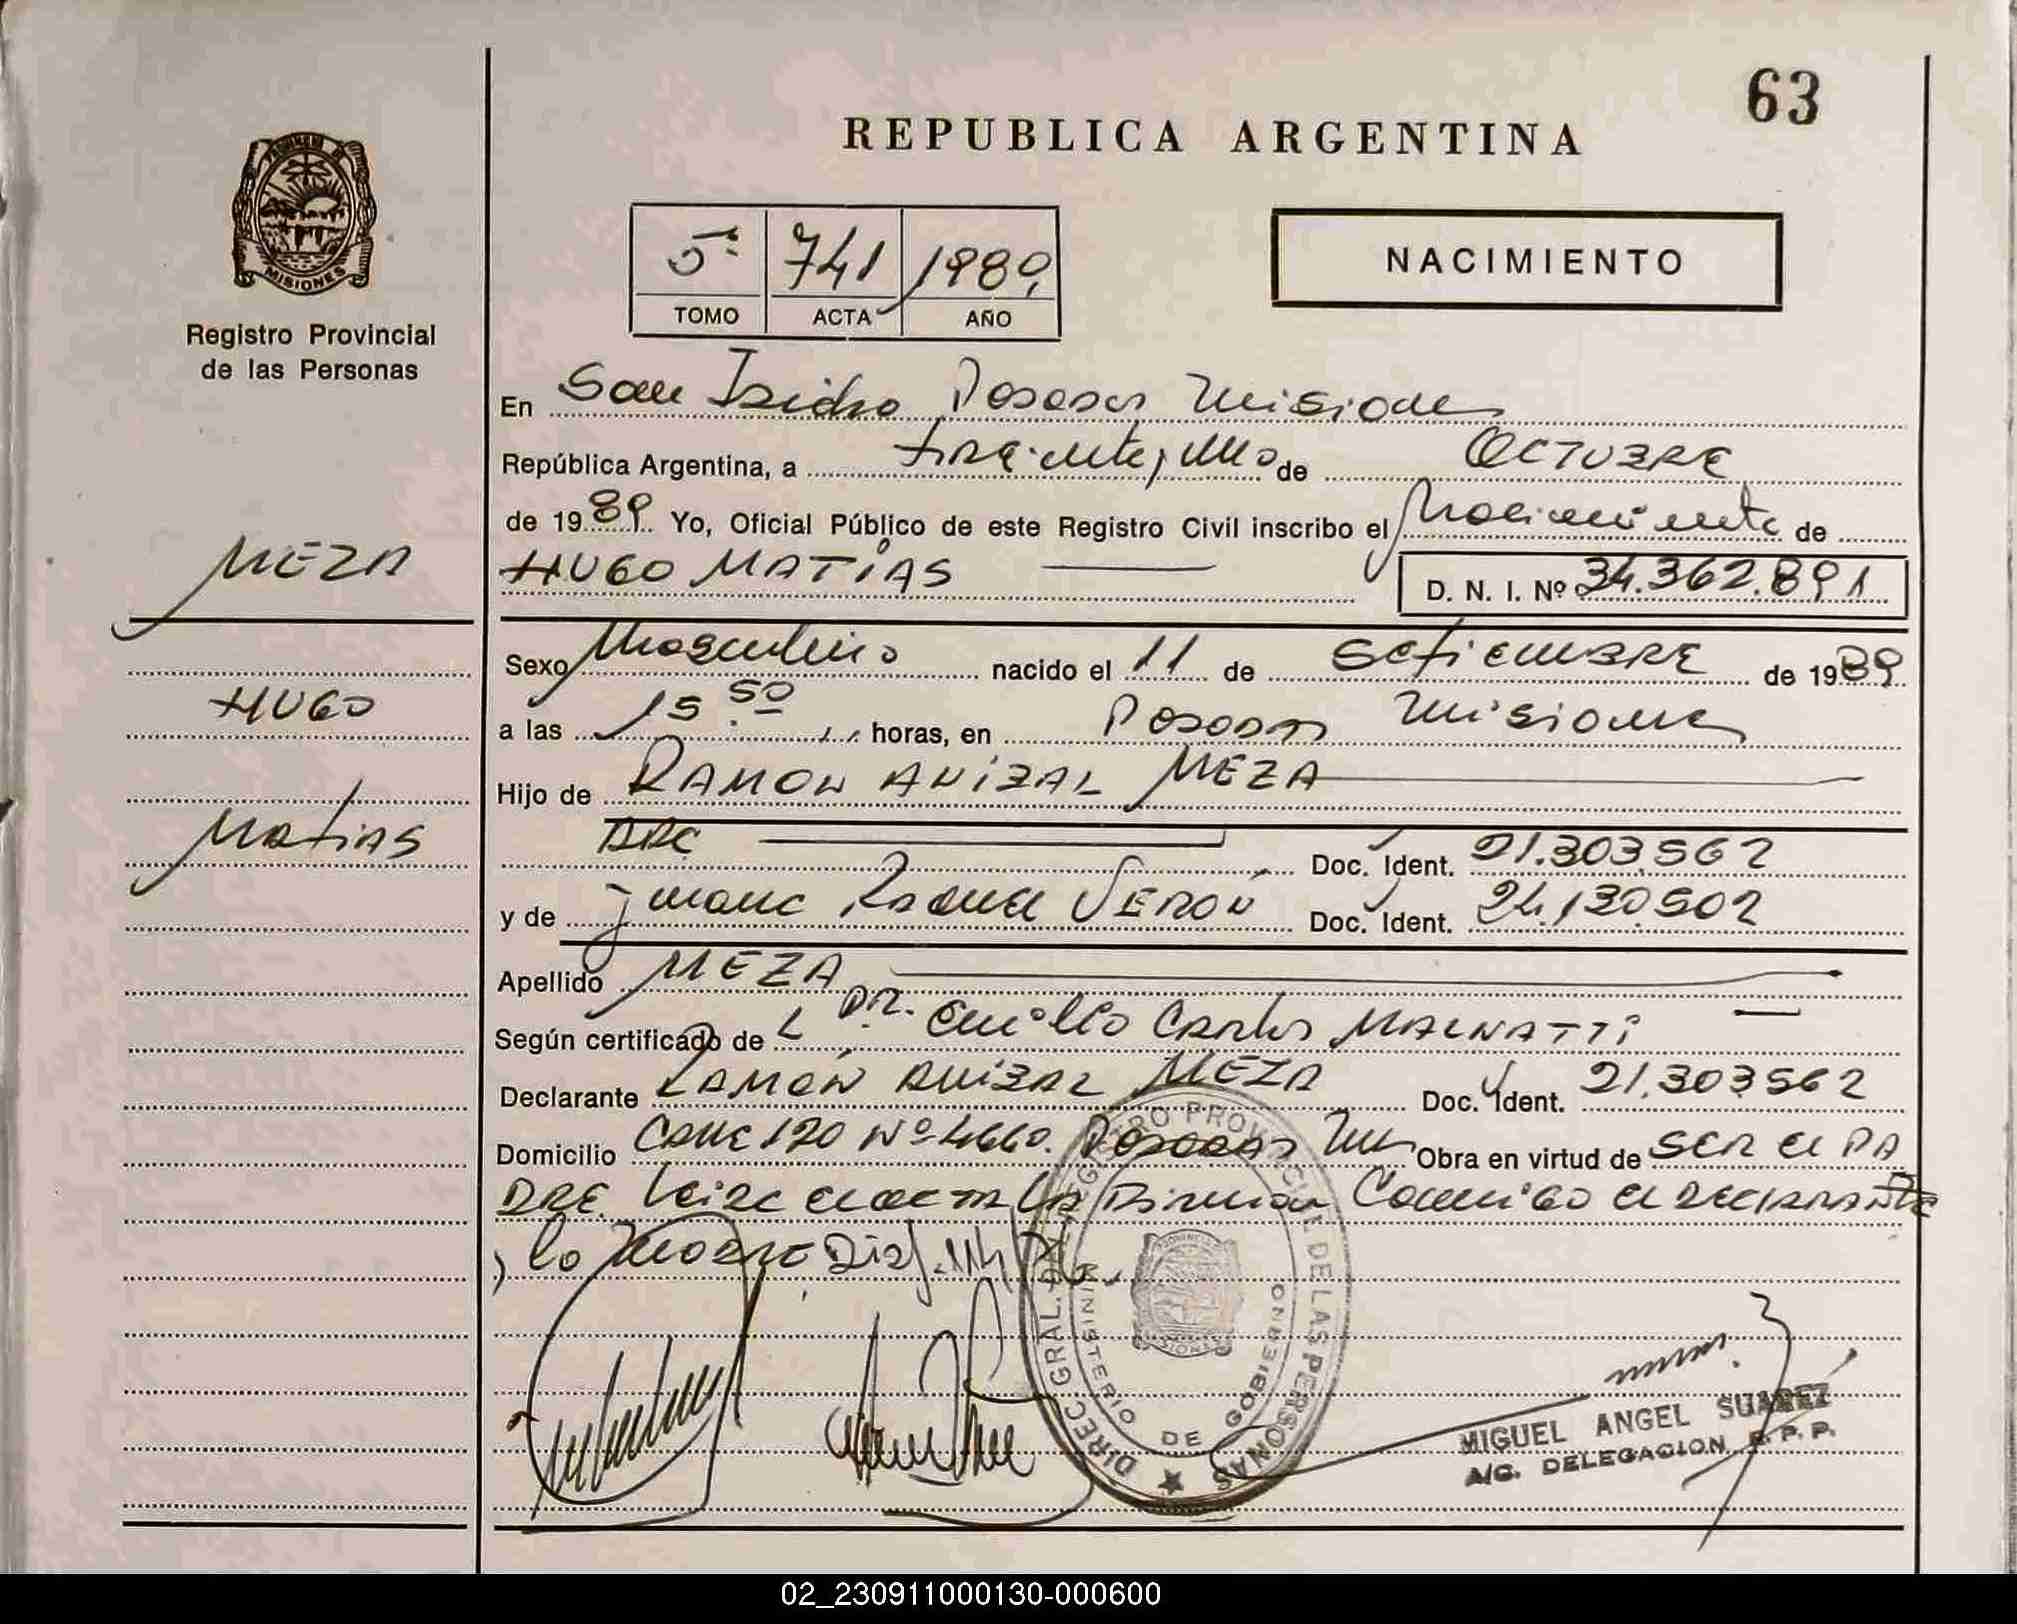 63
REPUBLICA ARGENTINA
PROVINCIA DE
MISIONES
Registro Provincial
de las Personas
5º 741 1989
TOMO ACTA AÑO
NACIMIENTO
En San Isidro Posadas Misiones
República Argentina, a treinta y uno de OCTUBRE
de 1989 Yo, Oficial Público de este Registro Civil inscribo el Nacimiento de
HUGO MATIAS D. N. I. Nº 34.362.891
MEZA
HUGO
Matias
Sexo Masculino nacido el 11 de Setiembre de 1989
a las 15.50 horas, en Posadas Misiones
Hijo de RAMON ANIBAL MEZA
Doc. Ident. 21.303.562
y de Juana Raquel VERÓN Doc. Ident. 24.130.502
Apellido MEZA
Según certificado de L DR. Emilio Carlos MALNATTI
Declarante RAMÓN ANIBAL MEZA Doc. Ident. 21.303.562
Domicilio Calle 120 Nº 4660. Posadas Mns Obra en virtud de SER El PA
DRE. Leida el acta la Firman Conmigo el DECLARANTE
y la Madre
DIREC. GRAL. DEL REGISTRO PROVINCIAL DE LAS PERSONAS
MINISTERIO DE GOBIERNO
MIGUEL ANGEL SUAREZ
A/C. DELEGACION R. P. P.
02_230911000130-000600